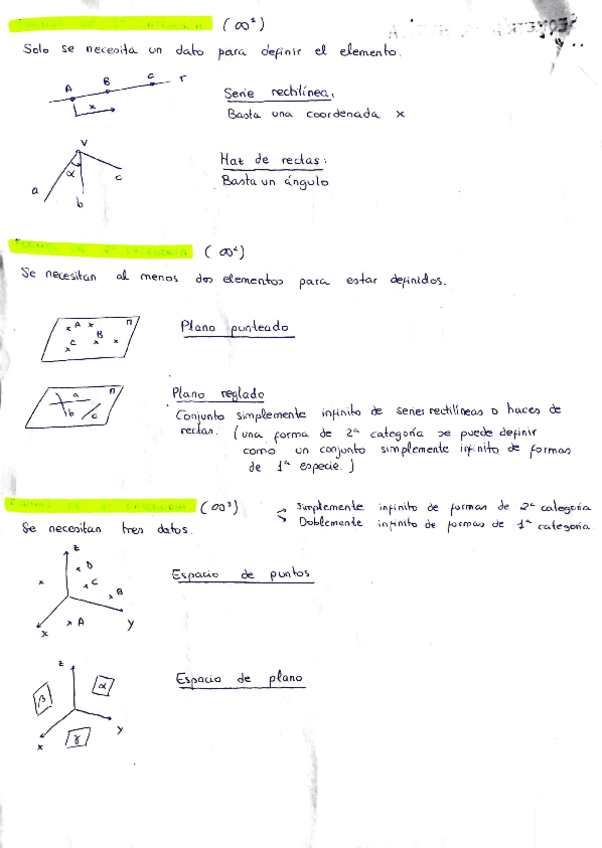 FORMAS DE 1ª CATEGORIA (∞¹)
Solo se necesita un dato para definir el elemento.
A B C r
x
Serie rectilínea.
Basta una coordenada x
V
α
a b c
Haz de rectas:
Basta un ángulo
FORMAS DE 2ª CATEGORIA (∞²)
Se necesitan al menos dos elementos para estar definidos.
A B C π
Plano punteado
a b c π
Plano reglado
Conjunto simplemente infinito de series rectilíneas o haces de
rectas. (una forma de 2ª categoría se puede definir
como un conjunto simplemente infinito de formas
de 1ª especie.)
FORMAS DE 3ª CATEGORIA (∞³)
Simplemente infinito de formas de 2ª categoría
Doblemente infinito de formas de 1ª categoria
Se necesitan tres datos.
z
D
C
B
A
x y
Espacio de puntos
z
β α
γ
x y
Espacio de plano